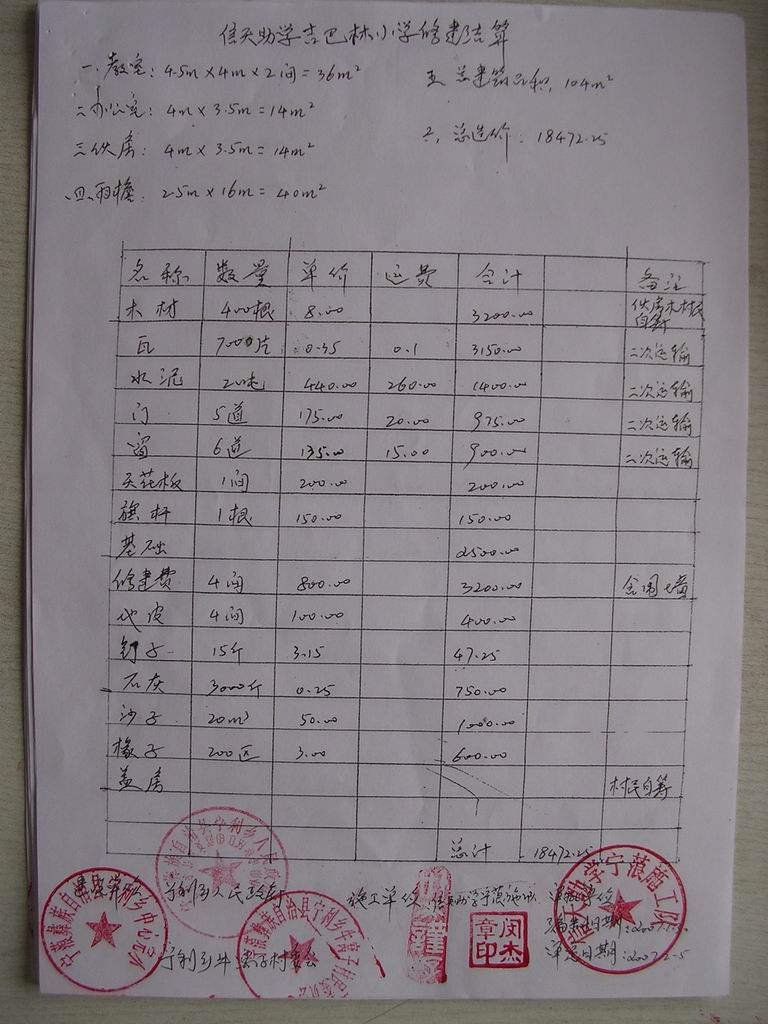 信天助学吉巴林小学修建结算
一、教室：4.5m×4m×2间=36m²
五、总建筑面积，104m²
二、办公室：4m×3.5m=14m²
六、总造价：18472.25
三、伙房：4m×3.5m=14m²
四、雨檐：2.5m×16m=40m²
名称 数量 单价 运费 合计 备注
木材 400根 8.00 3200.00 伙房木材村民自筹
瓦 7000片 0.35 0.1 3150.00 二次运输
水泥 2吨 440.00 260.00 1400.00 二次运输
门 5道 175.00 20.00 975.00 二次运输
窗 6道 135.00 15.00 900.00 二次运输
天花板 1间 200.00 200.00
旗杆 1根 150.00 150.00
基础 2500.00
修建费 4间 800.00 3200.00 含围墙
地皮 4间 100.00 400.00
钉子 15斤 3.15 47.25
石灰 3000斤 0.25 750.00
沙子 20m³ 50.00 1000.00
椽子 200匹 3.00 600.00
盖房 村民自筹
总计 18472.25
宁利乡人民政府 施工单位：信天助学宁蒗施工队
编制日期
宁利乡牛窝子村委会
审定日期：2007.2.5
宁蒗彝族自治县宁利乡中心完小
宁蒗彝族自治县宁利乡人民政府
宁蒗彝族自治县宁利乡牛窝子村民委员会
闵杰章印
助学宁蒗施工队